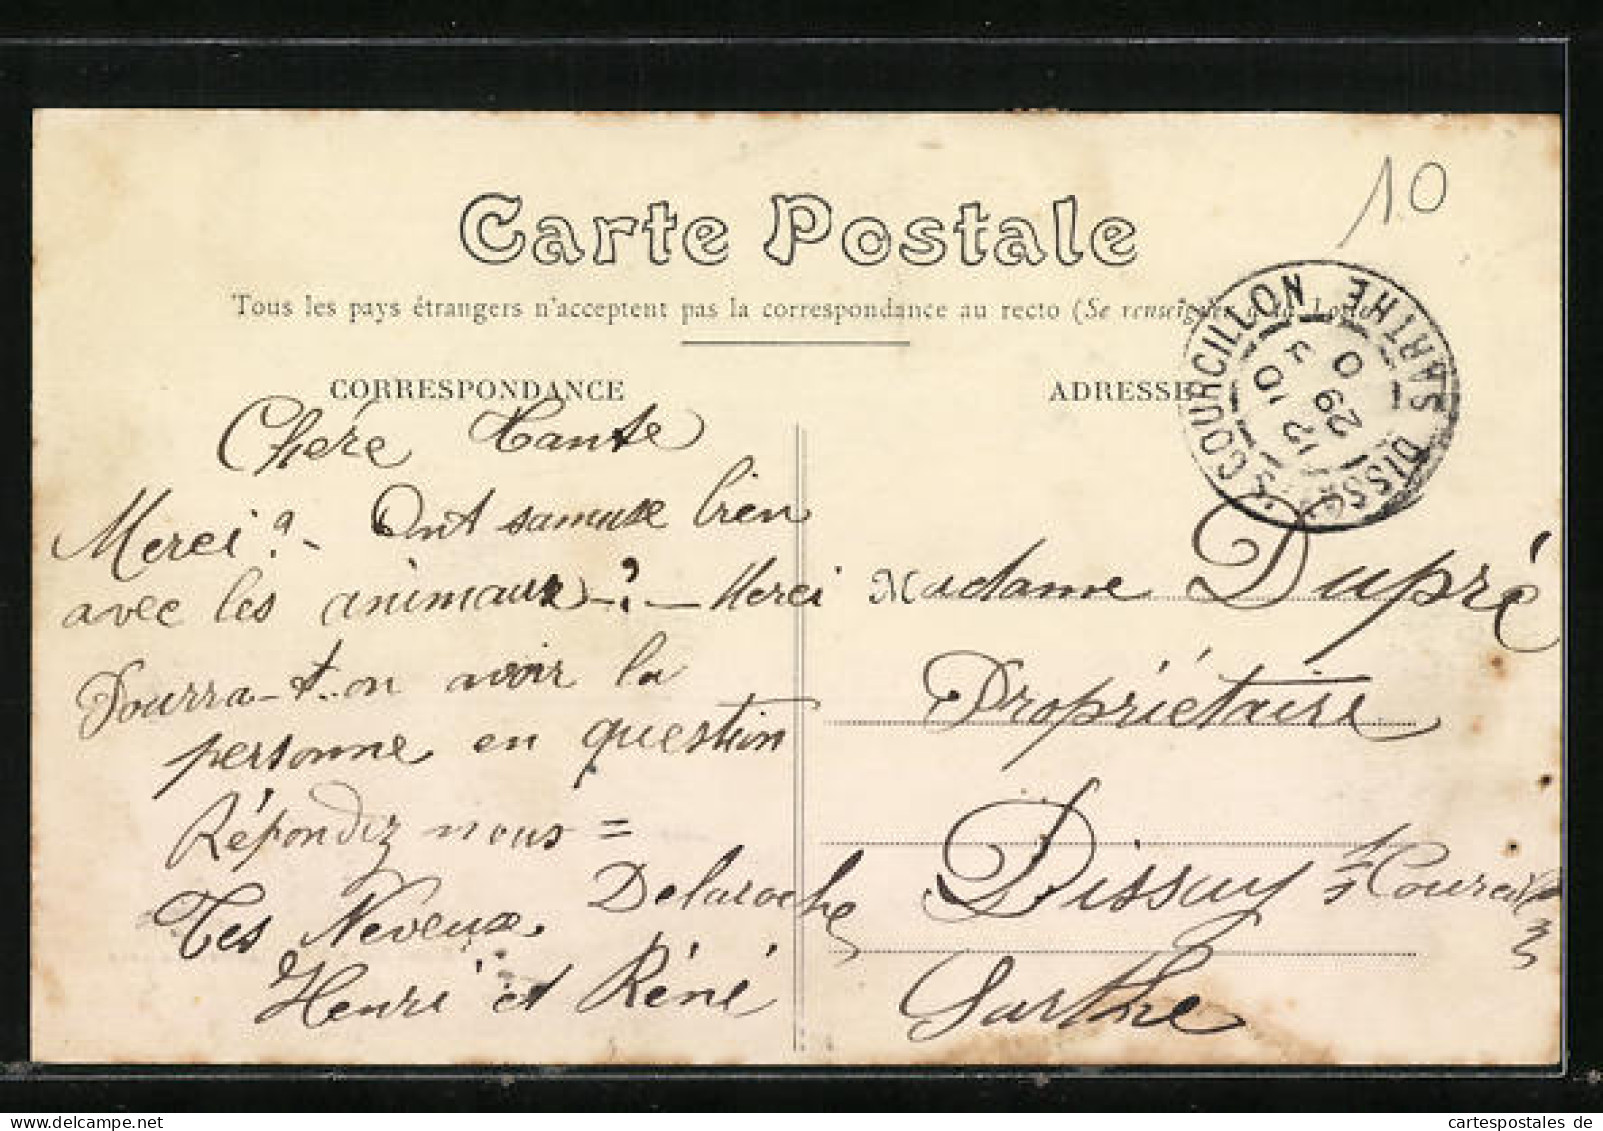 10
Carte Postale
Tous les pays étrangers n'acceptent pas la correspondance au recto (Se renseigner à la Poste)
CORRESPONDANCE
Chére Tante
Merci ?- Ont samuse bien
avec les animaux -?- Merci
Pourra-t-on avoir la
personne en question
Répondez nous =
Tes Neveux. Delaroche
Henri et Réné
ADRESSE
DISSAY S. COURCILLON SARTHE
12 10
29 5
Madame Dupré
Propriétaire
Dissay s/ Courcillon
Sarthe
cartespostales de